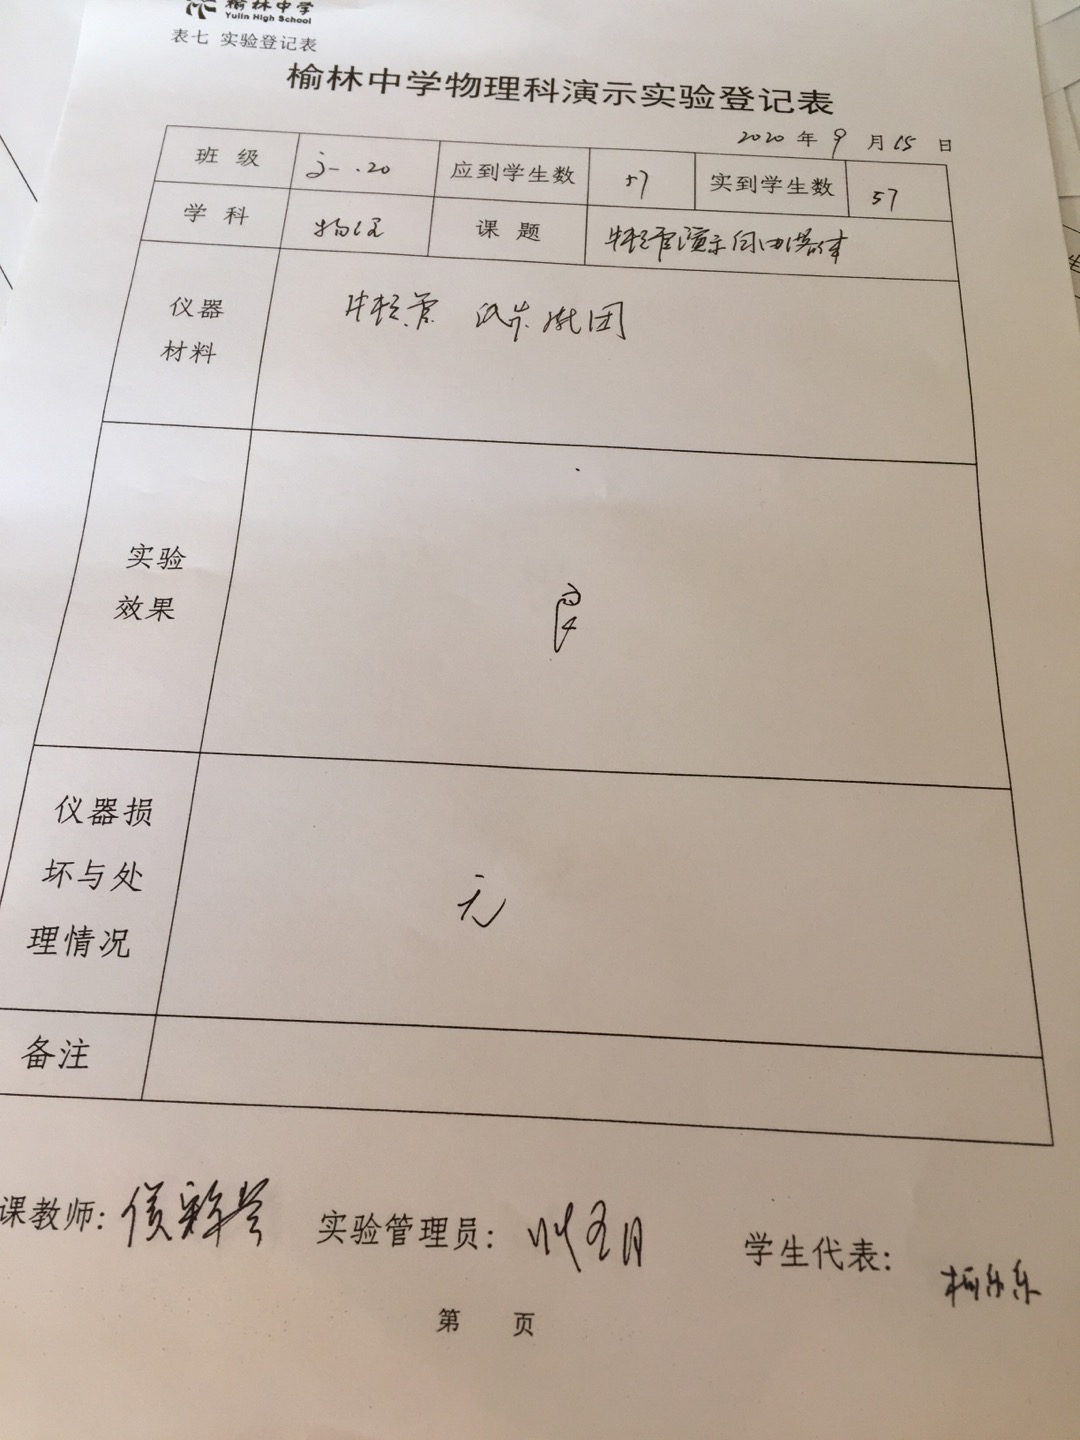 榆林中学
Yulin High School
表七 实验登记表
榆林中学物理科演示实验登记表
2020 年 9 月 15 日
班 级 .20 应到学生数 57 实到学生数 57
学 科 物理 课 题 牛顿管演示自由落体
仪器 牛顿管
材料
实验
效果
良
仪器损
坏与处
理情况
无
备注
课教师:
实验管理员:
学生代表:
第 页